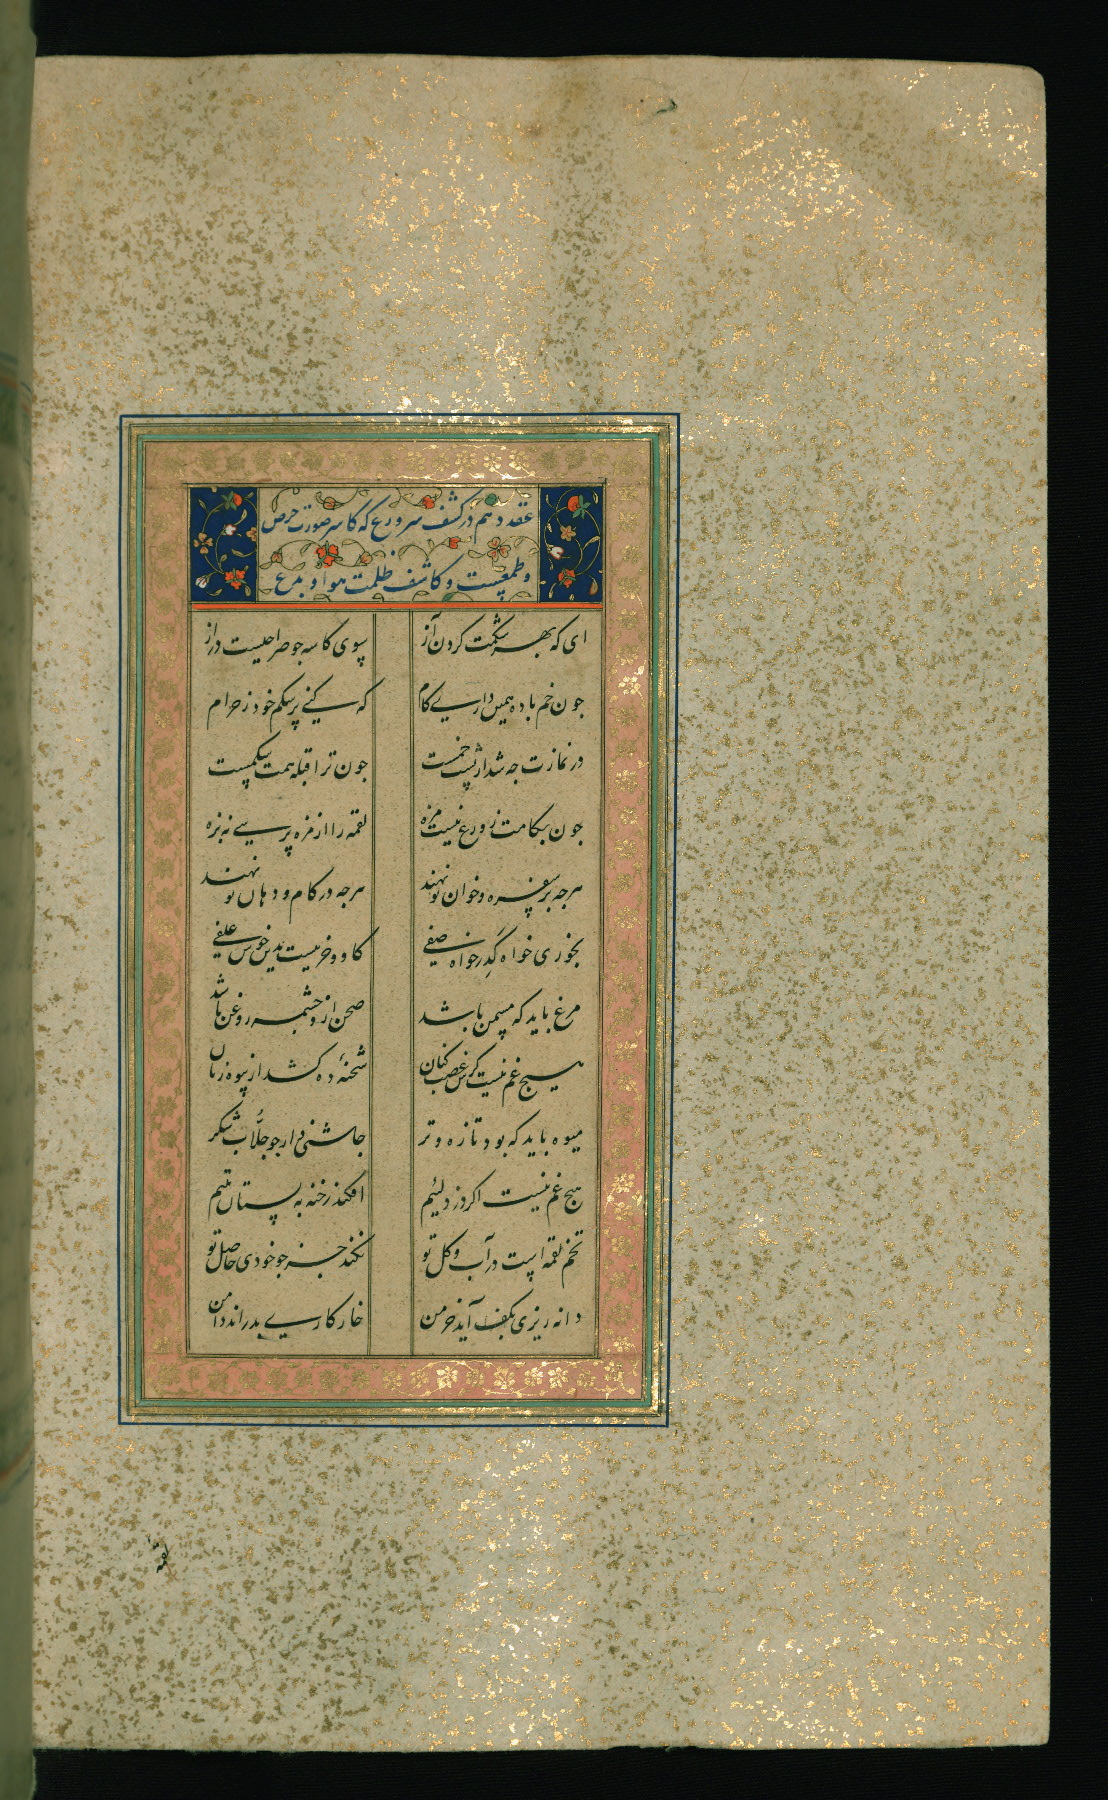 عقد دهم در کشف سر ورع که کاسر صورت حرص
و طمعست و کاشف ظلمت هوا و بدع
ای که بهر شکمت کردن آز سوی کاسه جو صراحیست دراز
جون خم باده همین داری کام که کنی پر شکم خود ز حرام
در نمازت جه شد ار پشت خمست جون ترا قبله همت شکمست
جون بکامت ز ورع نیست مزه لقمه را از مزه پرسی نه بزه
هرجه بر سفره و خوان تو نهند هرجه در کام و دهان تو نهند
بخوری خواه کدر خواه صفی کاو و خر نیست بدین خوش علفی
مرغ باید که مسمن باشد صحن از و چشمه روغن باشد
هیچ غم نیست کرش غصب کنان شحنه ده کشد از بیوه زنان
میوه باید که بود تازه و تر جاشنی دار جو جلاب شکر
هیج غم نیست اکر دزد لئیم افکند رخنه به بستان یتیم
تخم لقمه است در آب و کل تو نکند جز جو خودی حاصل تو
دانه ریزی بکف آید خرمن خار کاری بدراند دامن
لقمه